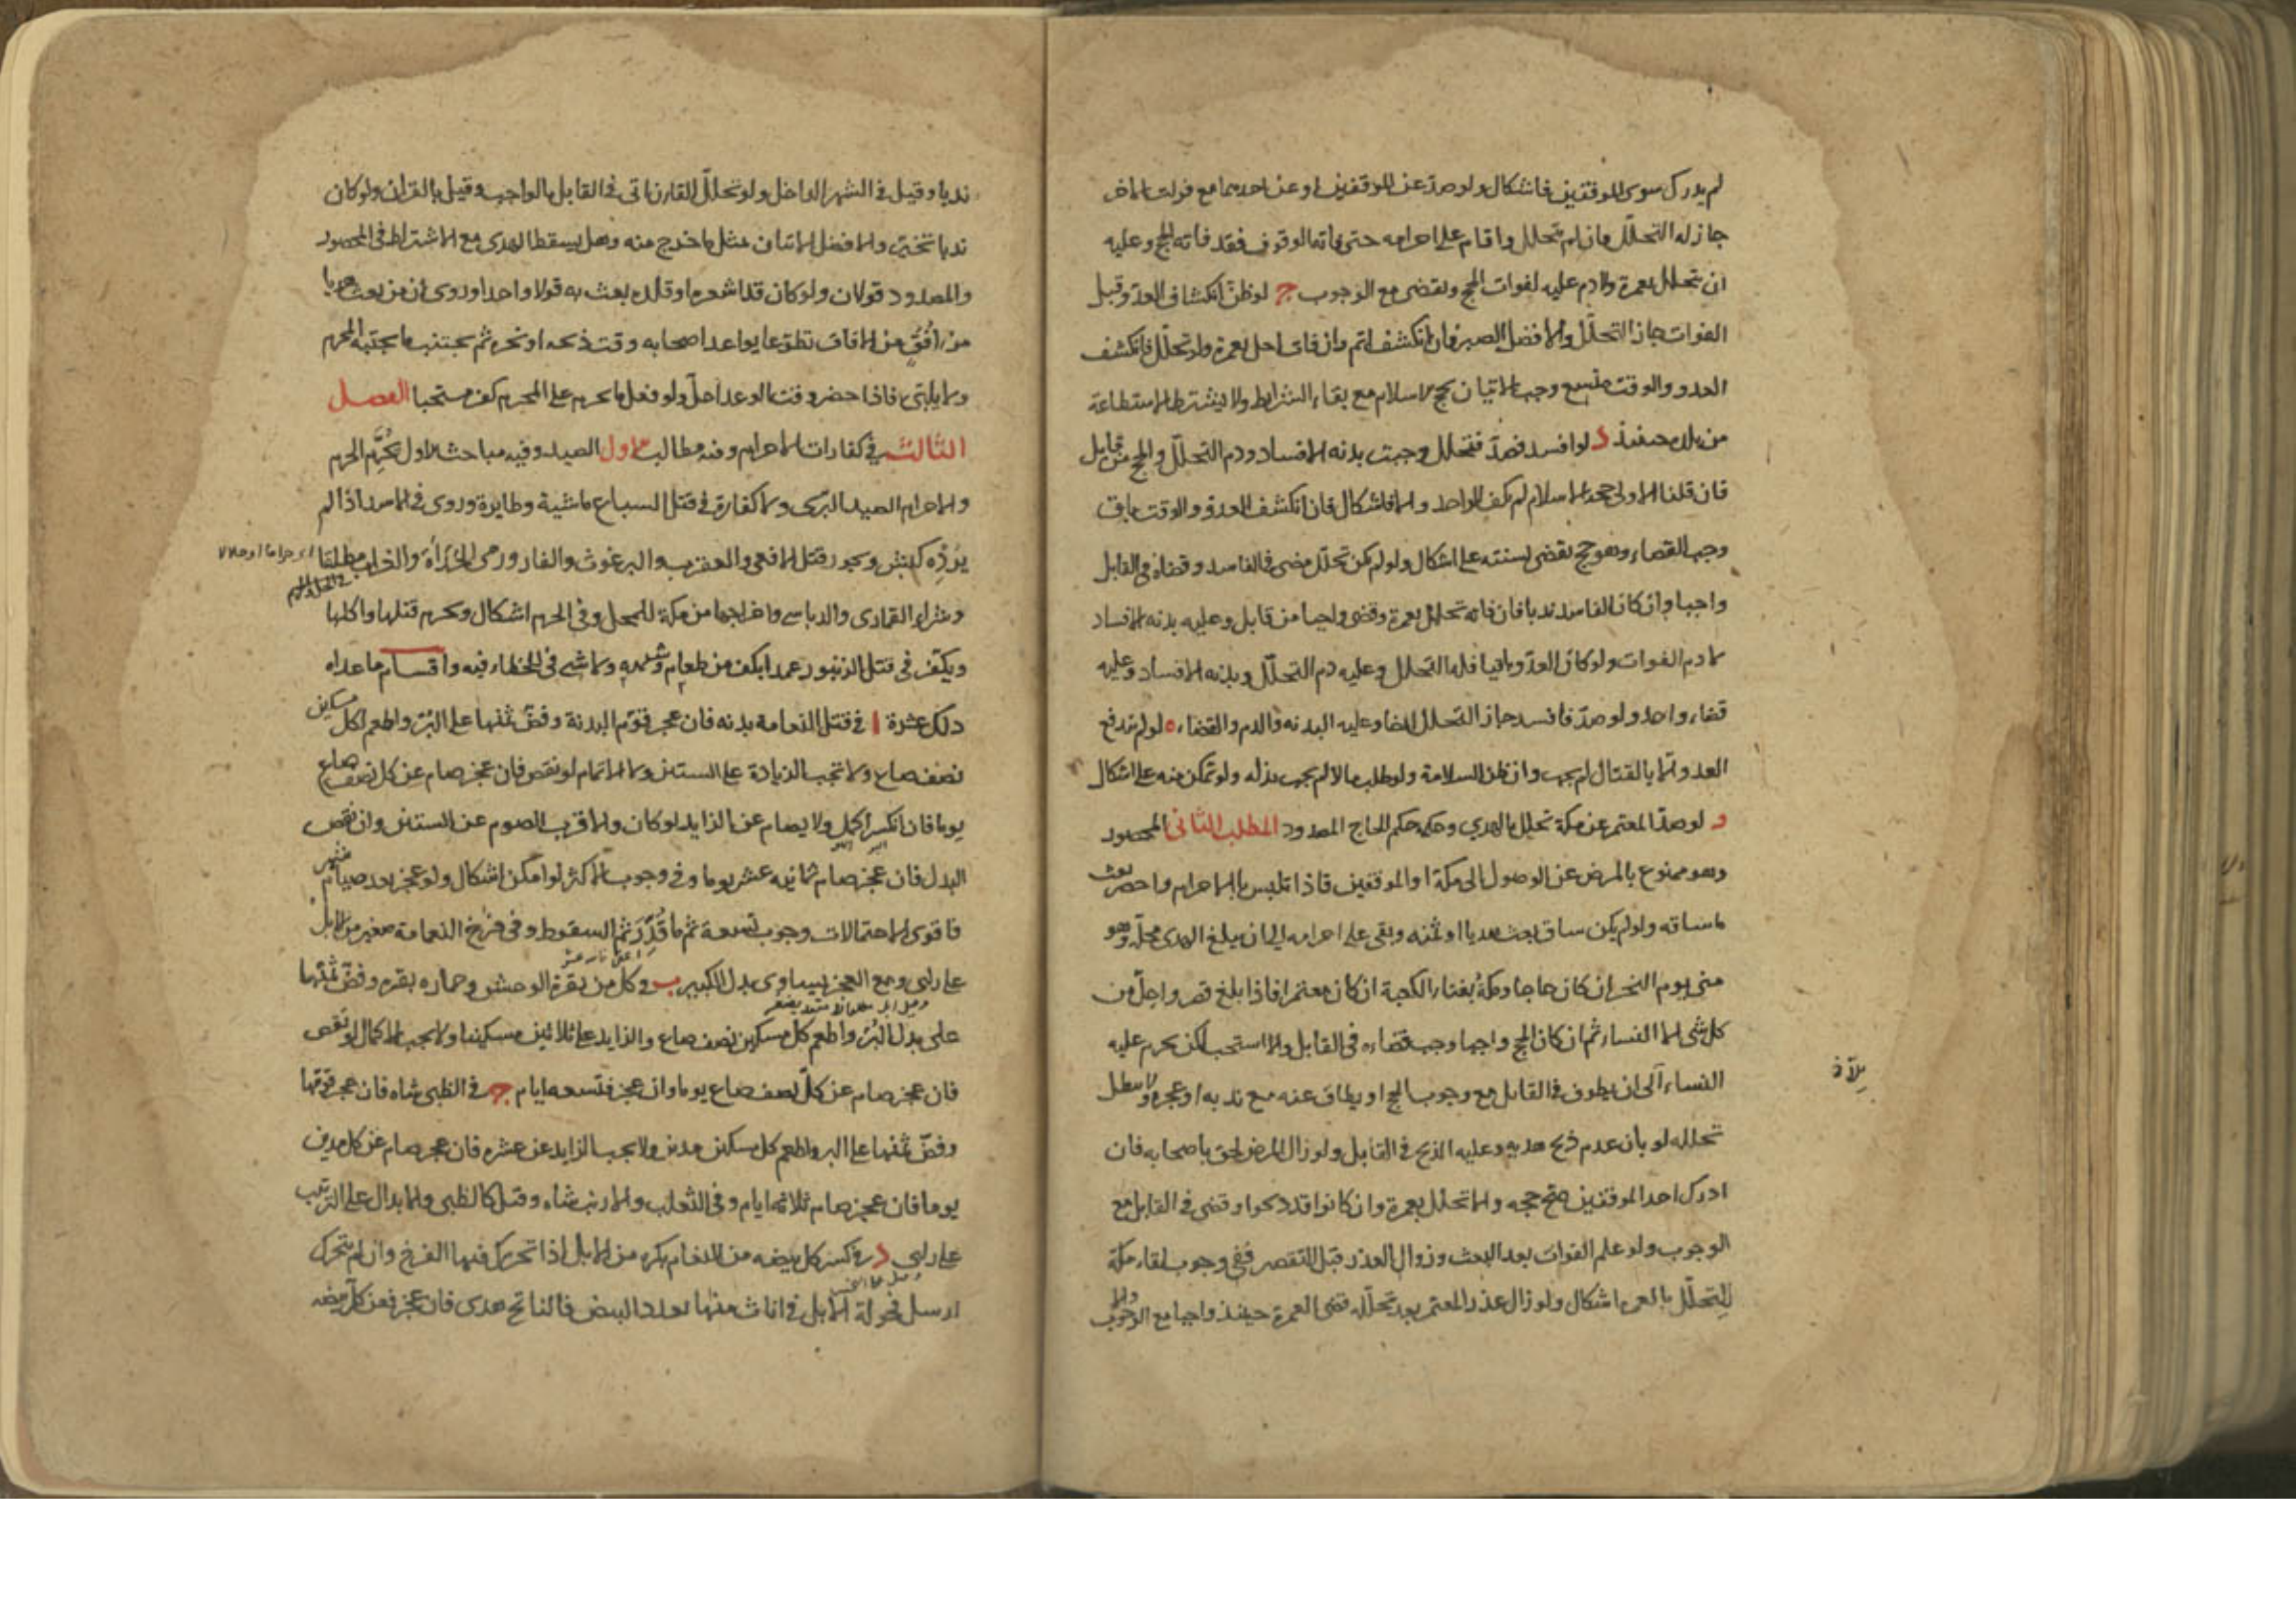 لم يدرك سوى الموقفين فاشكال ولو صدّ عن الموقفين او عن احدهما مع فوات الاخر
جاز له التحلّل فان لم يتحلل واقام على احرامه حتى فاته الوقوف فقد فاته الحج وعليه
ان يتحلل بعمرة ولا دم عليه لفوات الحج ويقضى مع الوجوب ج لو ظنّ انكشاف العدوّ قبل
الفوات جاز التحلّل والافضل الصبر فان انكشف اتم وان فات احل بعمرة ولو تحلّل فانكشف
العدو والوقت متسع وجب الاتيان بحج الاسلام مع بقاء الشرايط ولا يشترط الاستطاعة
من بلده حينئذ د لو افسد فصدّ فتحلل وجبت بدنه الافساد ودم التحلّل والحج من قابل
فان قلنا الاولى حجة الاسلام لم يكف الواحد والا فاشكال فان انكشف العدوّ والوقت باق
وجب القضاء وهو حج يقضى لسنته على اشكال ولو لم يكن تحلّل مضى فى الفاسد وقضاه فى القابل
واجبا وان كان الفاسد ندبا فان فاته تحلل بعمرة وقضى واجبا من قابل وعليه بدنه الافساد
لا دم الفوات ولو كان العدوّ باقيا فله التحلل وعليه دم التحلّل وبدنه الافساد وعليه
قضاء واحد ولو صدّ فافسد جاز التحلل ايضا وعليه البدنه والدم والقضاء ه لو لم يندفع
العدو الا بالقتال لم يجب وان ظن السلامة ولو طلب مالا لم يجب بذله ولو تمكن منه على اشكال
و لو صدّ المعتمر عن مكة تحلل بالهدي وحكمه حكم الحاج المصدود المطلب الثانى المحصور
وهو ممنوع بالمرض عن الوصول الى مكة او الموقفين فاذا تلبس بالاحرام واحصر بعث
ما ساقه ولو لم يكن ساق بعث هديا او ثمنه وبقى على احرامه الى ان يبلغ الهدى محلّه وهو
منى يوم النحر ان كان حاجا ومكة بفناء الكعبة ان كان معتمرا فاذا بلغ قصر واحلّ من
كل شى الا النساء ثم ان كان الحج واجبا وجب قضاءه فى القابل والا استحب لكن يحرم عليه
النساء الى ان يطوف فى القابل مع وجوب الحج او يطاف عنه مع ندبه او عجزه ولا يبطل
تحلله لو بان عدم ذبح هديه وعليه الذبح فى القابل ولو زال المرض لحق باصحابه فان
ادرك احد الموقفين صح حجه والا تحلل بعمرة وان كانوا قد ذبحوا وقضى فى القابل مع
الوجوب ولو علم الفوات بعد البعث وزوال العذر قبل التقصير ففى وجوب لقاء مكة
للتحلّل بالعمرة اشكال ولو زال عذر المعتمر بعد تحلّله قضى العمرة حينئذ واجبا مع الوجوب والا
ندبا وقيل فى الشهر الداخل ولو تحلّل القارن اتى فى القابل بالواجب وقيل بالقران ولو كان
ندبا تخيّر والافضل الاتيان بمثل ما خرج منه وهل يسقط الهدى مع الاشتراط فى المحصور
والمصدود قولان ولو كان قد اشعره او قلده بعث به قولا واحدا وروى ان من بعث هديا
من افق من الافاق تطوعا يواعد اصحابه وقت ذبحه او نحره ثم يجتنب ما يجتنبه المحرم
ولا يلبّى فاذا حضر وقت الوعد احلّ ولو فعل ما يحرم على المحرم كفر مستحبا الفصل
الثالث فى كفارات الاحرام وفيه مطالب الاول الصيد وفيه مباحث الاول يُحَرِّم الحرم
والاحرام الصيد البرّى ولا كفارة فى قتل السباع ماشية وطايرة وروى فى الاسد اذا لم
يُرِدْه كبش ويجوز قتل الافعى والعقرب والبرغوث والفار ورمى الحِدَأة والغراب مطلقا
وشراء القمارى والدباسى واخراجها من مكة للمحل وفى الحرم اشكال ويحرم قتلها واكلها
ويكفّر فى قتل الزنبور عمدا بكف من طعام وشبهه ولا شى فى الخطاء فيه واقسام ما عداه
ذلك عشرة ا فى قتل النعامة بدنه فان عجز قوّم البدنة وفضّ ثمنها على البُرّ واطعم لكل مسكين
نصف صاع ولا تجب الزيادة على الستين ولا الاتمام لو نقص فان عجز صام عن كل نصف صاع
يوما فان انكسر اكمل ولا يصام عن الزايد لو كان والاقرب الصوم عن الستين وان نقص
البدل فان عجز صام ثمانيه عشر يوما وفى وجوب الاكثر لو امكن اشكال ولو عجز بعد صيام شهر
فاقوى الاحتمالات وجوب تسعة ثم ما قُدِّرَ ثم السقوط وفى فرخ النعامة صغير من الابل
على راى ومع العجز يساوى بدل الكبير ب فى كل من بقرة الوحش وحماره بقره وفضّ ثمنها
على بدل البُرّ واطعم كل مسكين نصف صاع والزايد على ثلاثين مسكينا ولا يجب الاكمال لو نقص
فان عجز صام عن كلّ نصف صاع يوما وان عجز فتسعه ايام ج فى الظبى شاه فان عجز قوّمها
وفضّ ثمنها على البر واطعم كل مسكين مدين ولا يجب الزايد عن عشره فان عجز صام عن كل مدين
يوما فان عجز صام ثلاثه ايام وفى الثعلب والارنب شاه وقيل كالظبى والابدال على الترتيب
على راى د فى كسر كل بيضه من النعام بكره من الابل اذا تحرك فيها الفرخ وان لم يتحرك
ارسل فحولة الابل فى اناث منها بعدد البيض فالناتج هدى فان عجز فعن كل بيضه